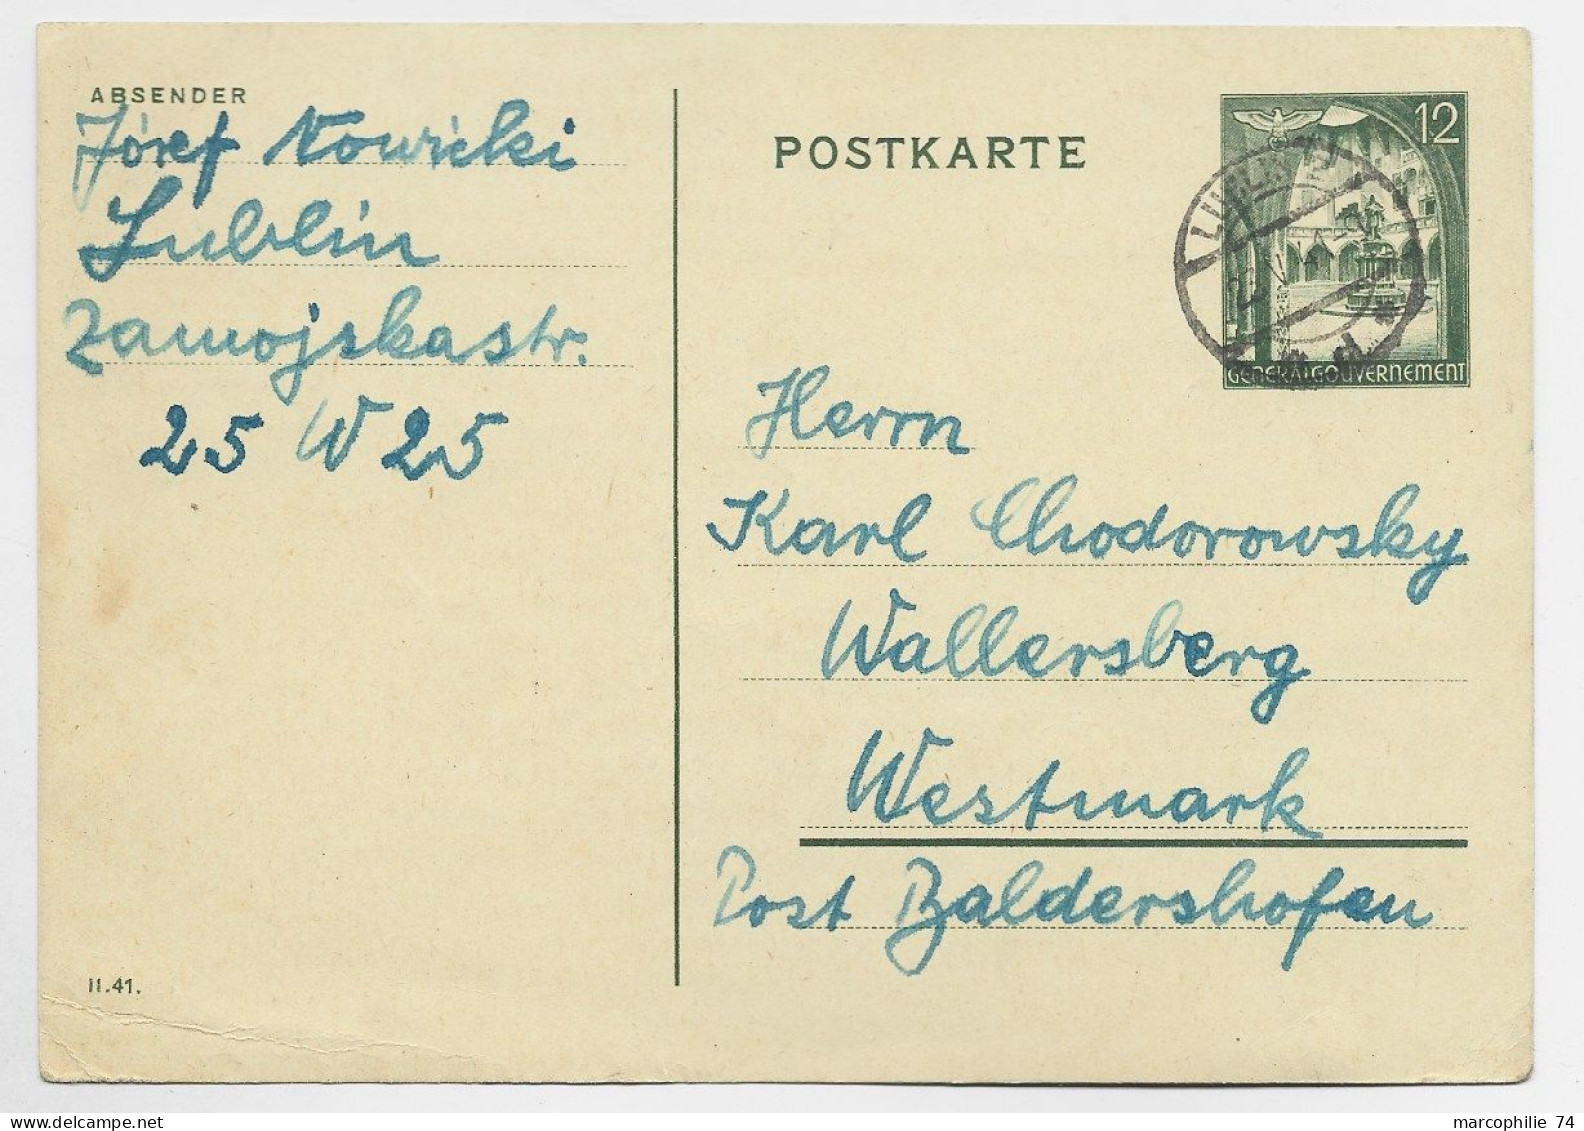 ABSENDER
Józef Nowicki
Lublin
Zamojskastr.
25 W 25
II.41.
POSTKARTE
12
LUBLIN
GENERALGOUVERNEMENT
Herrn
Karl Chodorowsky
Wallersberg
Westmark
Post Baldershofen
marcophilie 74